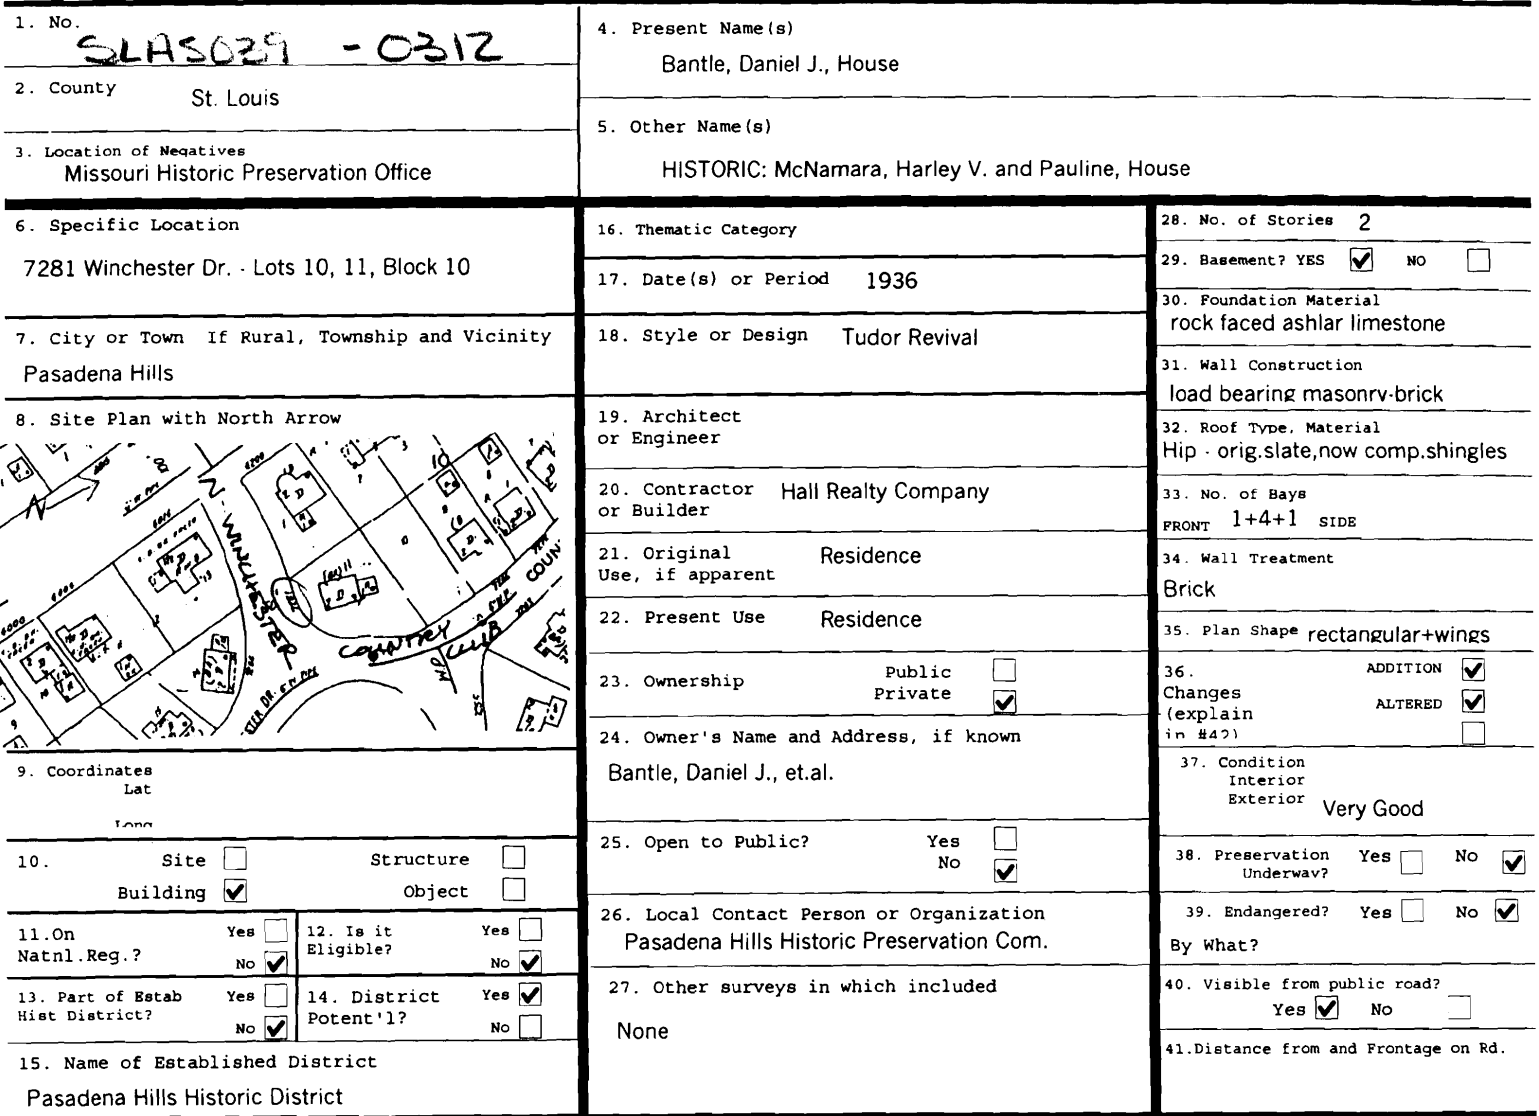 1. No.
SLAS029 - 0312
2. County
St. Louis
3. Location of Negatives
Missouri Historic Preservation Office
4. Present Name(s)
Bantle, Daniel J., House
5. Other Name(s)
HISTORIC: McNamara, Harley V. and Pauline, House
6. Specific Location
7281 Winchester Dr. - Lots 10, 11, Block 10
7. City or Town If Rural, Township and Vicinity
Pasadena Hills
8. Site Plan with North Arrow
N
N. WINCHESTER
COUNTRY CLUB
COUN
10
9. Coordinates
Lat
Long
10. Site
Structure
Building ✔
Object
11.On Natnl.Reg.?
Yes
No ✔
12. Is it Eligible?
Yes
No ✔
13. Part of Estab Hist District?
Yes
No ✔
14. District Potent'l?
Yes ✔
No
15. Name of Established District
Pasadena Hills Historic District
16. Thematic Category
17. Date(s) or Period 1936
18. Style or Design Tudor Revival
19. Architect
or Engineer
20. Contractor Hall Realty Company
or Builder
21. Original Residence
Use, if apparent
22. Present Use Residence
23. Ownership
Public
Private ✔
24. Owner's Name and Address, if known
Bantle, Daniel J., et.al.
25. Open to Public? Yes
No ✔
26. Local Contact Person or Organization
Pasadena Hills Historic Preservation Com.
27. Other surveys in which included
None
28. No. of Stories 2
29. Basement? YES ✔ NO
30. Foundation Material
rock faced ashlar limestone
31. Wall Construction
load bearing masonry-brick
32. Roof Type, Material
Hip - orig.slate,now comp.shingles
33. No. of Bays
FRONT 1+4+1 SIDE
34. Wall Treatment
Brick
35. Plan Shape rectangular+wings
36. ADDITION ✔
Changes
(explain ALTERED ✔
in #42)
37. Condition
Interior
Exterior Very Good
38. Preservation Yes No ✔
Underway?
39. Endangered? Yes No ✔
By What?
40. Visible from public road?
Yes ✔ No
41.Distance from and Frontage on Rd.